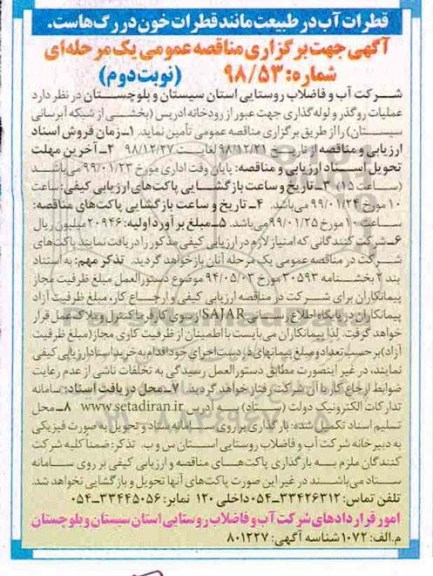 قطرات آب در طبیعت مانند قطرات خون در رگ هاست.
آگهی جهت برگزاری مناقصه عمومی یک مرحله ای
شماره: ۹۸/۵۳ (نوبت دوم)
شرکت آب و فاضلاب روستایی استان سیستان و بلوچستان در نظر دارد
عملیات روگذر و لوله گذاری جهت عبور از رودخانه ادریس (بخشی از شبکه آبرسانی
سیستان) را از طریق برگزاری مناقصه عمومی تأمین نماید. ۱ـ زمان فروش اسناد
ارزیابی و مناقصه از تاریخ ۹۸/۱۲/۲۱ لغایت ۹۸/۱۲/۲۷ ۲ـ آخرین مهلت
تحویل اسناد ارزیابی و مناقصه: پایان وقت اداری مورخ ۹۹/۰۱/۲۳ می باشد
(ساعت ۱۵) ۳ـ تاریخ و ساعت بازگشایی پاکت های ارزیابی کیفی: ساعت
۱۰ مورخ ۹۹/۰۱/۲۴ می باشد. ۴ـ تاریخ و ساعت بازگشایی پاکت های مناقصه:
ساعت ۱۰ مورخ ۹۹/۰۱/۲۵ می باشد. ۵ـ مبلغ برآورد اولیه: ۲۰۹۴۶ میلیون ریال
۶ـ شرکت کنندگانی که امتیاز لازم در ارزیابی کیفی مذکور را دریافت نمایند پاکت های
شرکت در مناقصه عمومی یک مرحله آنان باز خواهد گردید. تذکر مهم: به استناد
بند ۲ بخشنامه ۳۰۵۹۳ مورخ ۹۴/۰۵/۰۳ موضوع دستورالعمل مبلغ ظرفیت مجاز
پیمانکاران برای شرکت در مناقصه ارزیابی کیفی و ارجاع کار، مبلغ ظرفیت آزاد
پیمانکاران در پایگاه اطلاع رسانی SAJAR از سوی کارفرما کنترل و ملاک عمل قرار
خواهد گرفت. لذا پیمانکاران می بایست با اطمینان از ظرفیت کاری مجاز (مبلغ ظرفیت
آزاد) بر حسب تعداد و مبلغ پیمانهای در دست اجرای خود اقدام به خرید اسناد ارزیابی کیفی
نمایند، در غیر اینصورت مطابق دستورالعمل رسیدگی به تخلفات ناشی از عدم رعایت
ضوابط ارجاع کار با آن شرکت رفتار خواهد گردید. ۷ـ محل دریافت اسناد: سامانه
تدارکات الکترونیک دولت (ستاد) به آدرس www.setadiran.ir ۸ـ محل
تسلیم اسناد تکمیل شده: بارگذاری بر روی سامانه ستاد و تحویل به صورت فیزیکی
به دبیرخانه شرکت آب و فاضلاب روستایی استان س و ب. تذکر: ضمناً کلیه شرکت
کنندگان ملزم به بارگذاری پاکت های مناقصه و ارزیابی کیفی بر روی سامانه
ستاد می باشند در غیر این صورت پاکت های آنها تحویل و بازگشایی نخواهد شد.
تلفن تماس: ۳۳۴۲۶۳۱۲-۰۵۴ داخلی ۱۲۰ نمابر: ۳۳۴۴۵۰۵۶-۰۵۴
امور قراردادهای شرکت آب و فاضلاب روستایی استان سیستان و بلوچستان
م.الف: ۱۰۷۲ شناسه آگهی: ۸۰۱۲۲۷